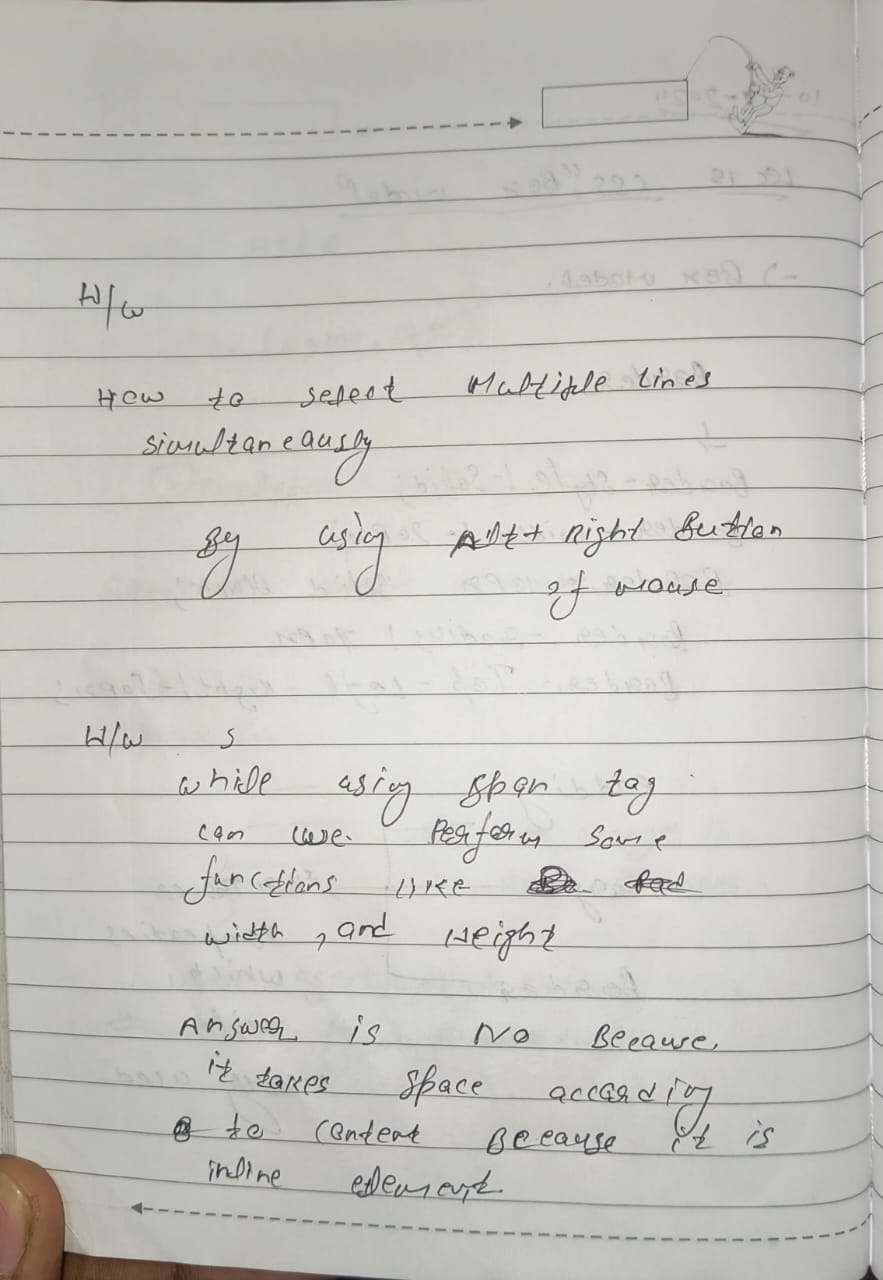 H/w
How to select Multiple lines
simultaneously
By using Alt + Right Button
of mouse
H/w s
while using span tag
can we perform some
functions like
width, and Height
Answer is No Because,
it takes space according
to content Because it is
inline element.